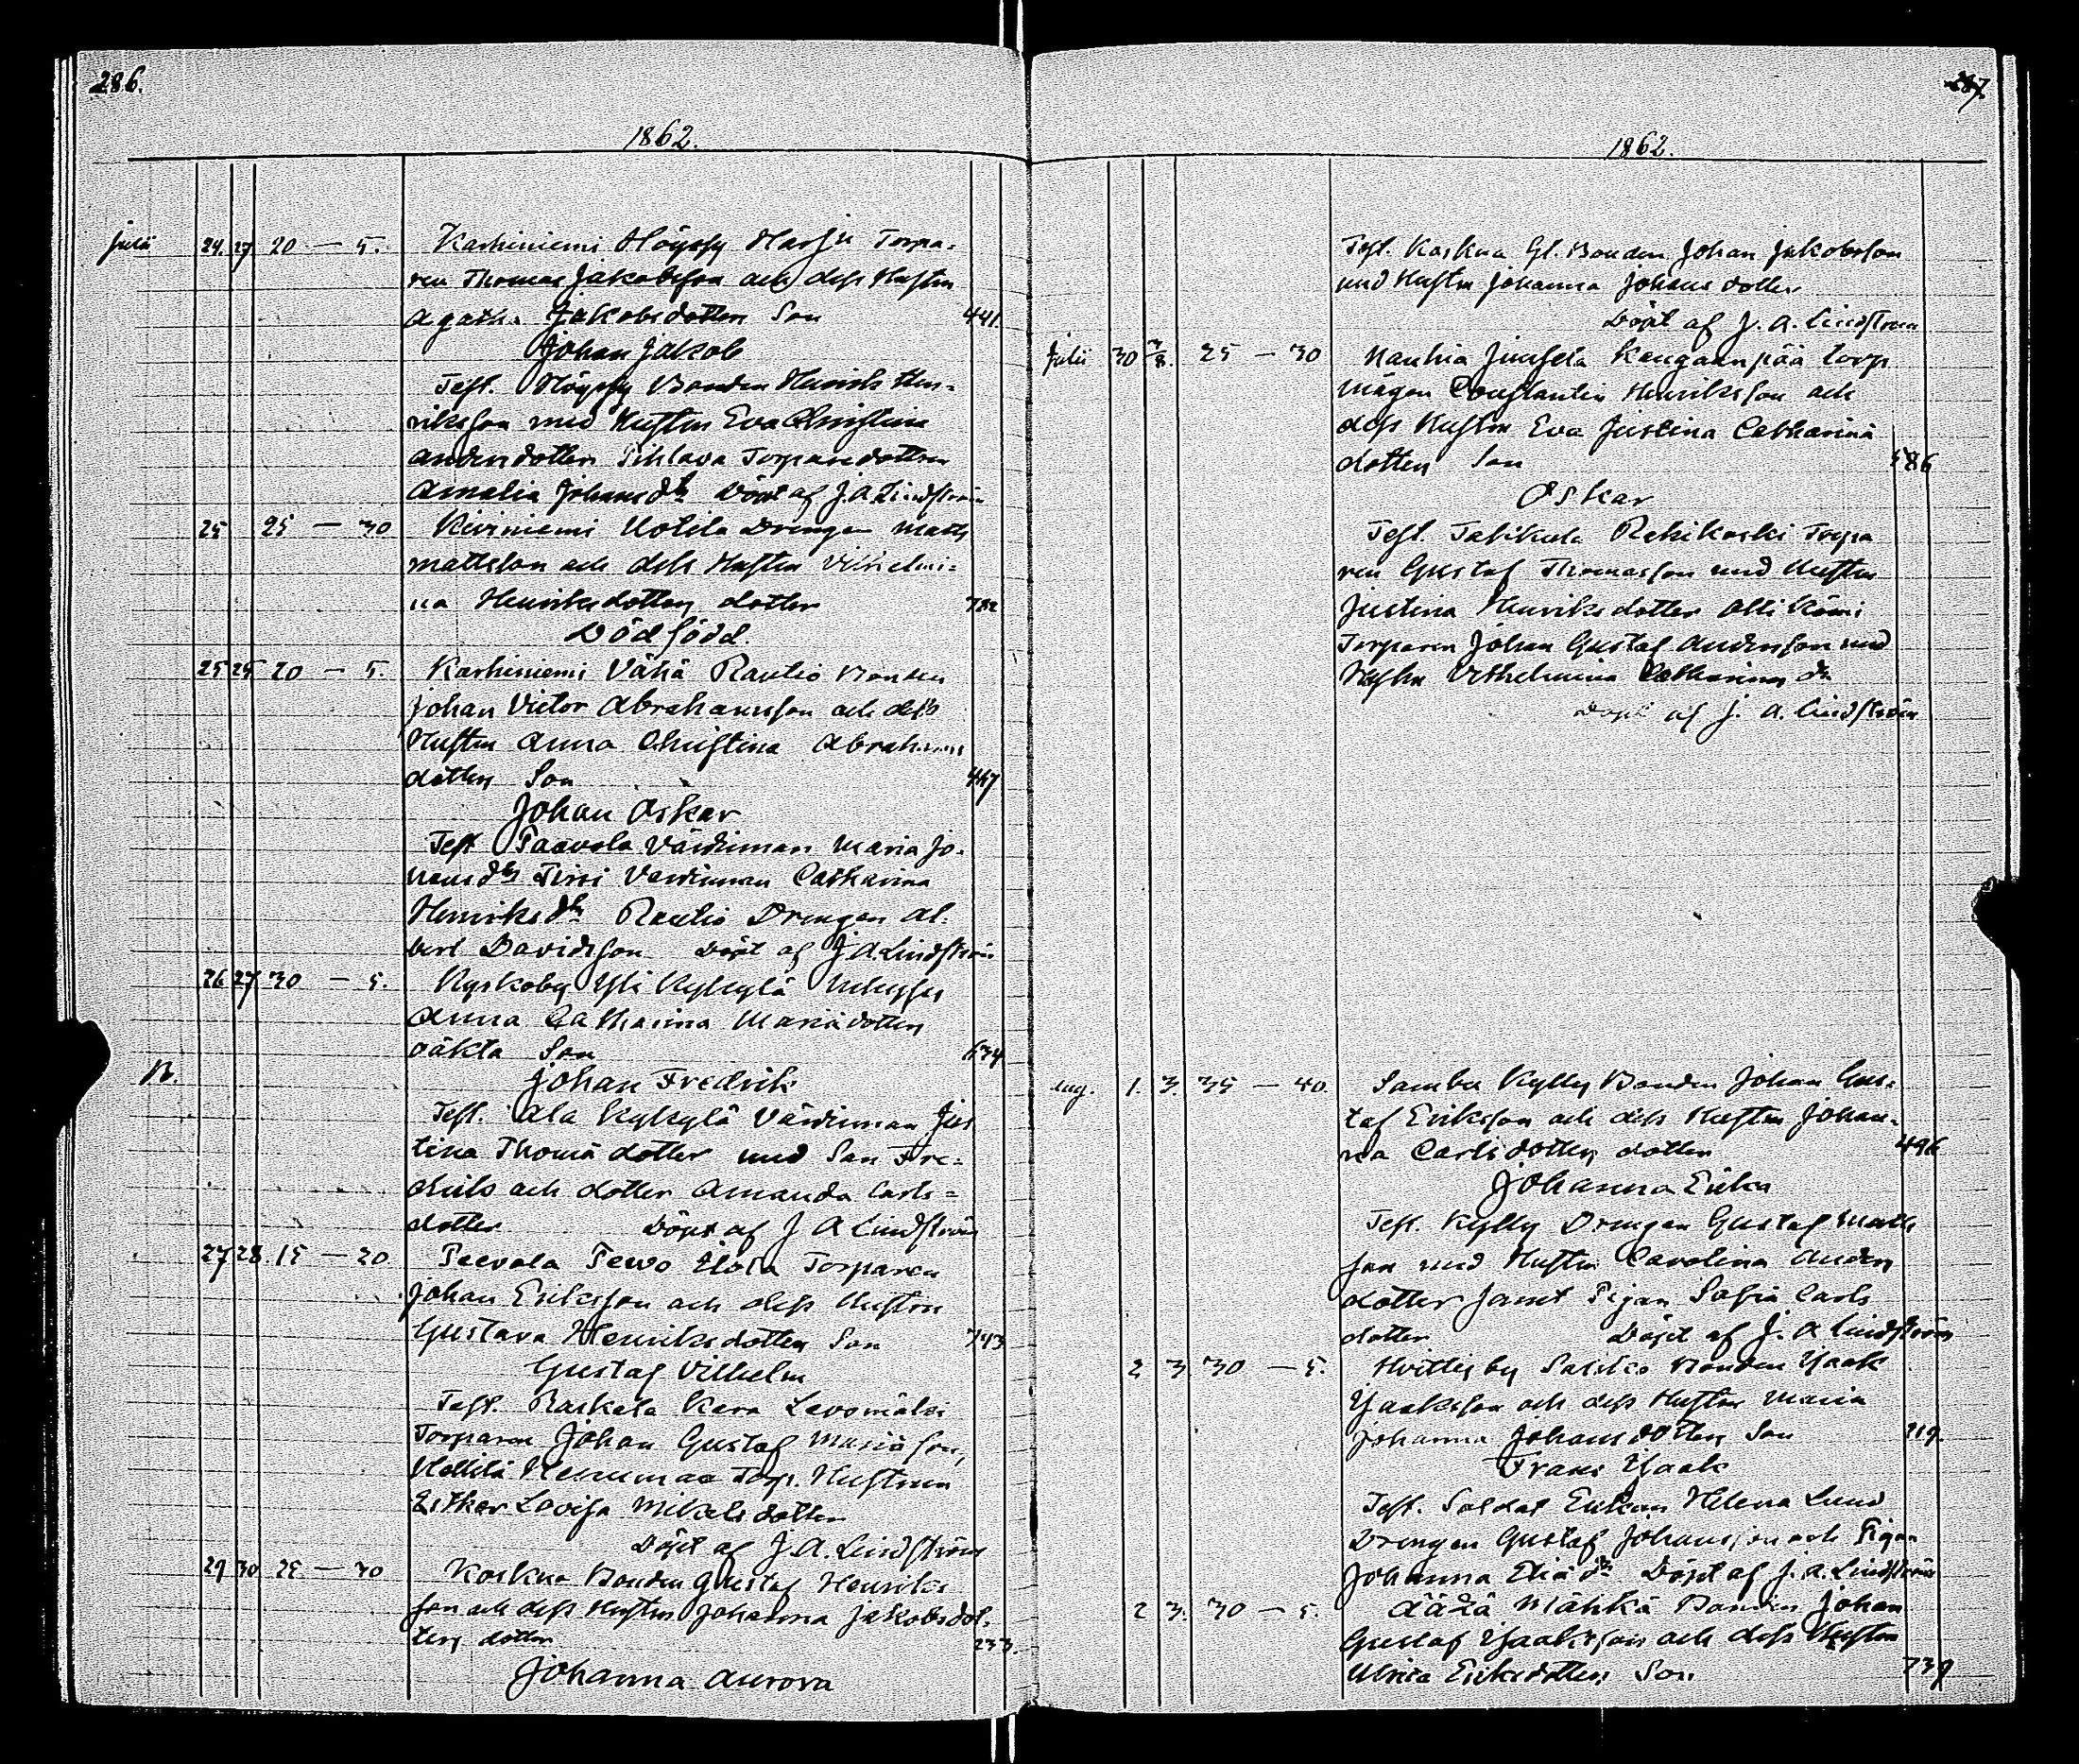 286.
1862.
Julii 24. 27 20 — 5. Karhiniemi Höyssy Harju Torpa-
ren Thomas Jakobsson och dess Hustru
Agatha Jakobsdotters Son 441.
Johan Jakob
Test. Höyssy Bonden Henrik Hen-
riksson med Hustru Eva Christina
Andersdotter Torparedottren
Amalia Johansdr Döpt af J. A. Lindström
25 25 — 30 Kiviniemi Uotila Drengen Matts
Mattsson och dess Hustru Vilhelmi-
na Henriksdotters dotter 782
Dödfödd.
25 25 20 — 5. Karhiniemi Vähä Rautio Bonden
Johan Victor Abrahamsson och dess
Hustru Anna Christina Abrahams
dotters Son 447
Johan Oskar
Test Paavola Värdinnan Maria Jo-
hansdr Värdinnan Catharina
Henriksdr Rautio Drengen Al-
bert Davidsson Döpt af J. A. Lindström
26 27 30 — 5. Kyrkoby Yli Kylkylä
Anna Catharina Mariädotters
oäkta Son 634
N. Johan Fredrik
Test. Ala Kylkylä Värdinnan Jus
tina Thomädotter med Son Fre-
drik och dotter Amanda Carls-
dotter Döpt af J A Lindström
27 28. 15 — 20 Torparen
Johan Eriksson och dess Hustru
Gustava Henriksdotters Son 743
Gustaf Vilhelm
Test. Raskala
Torparen Johan Gustaf Mariäson,
Torp. Hustrun
Esther Lovisa Mikelsdotter
Döpt af J. A. Lindström
29 30 25 — 30 Koskua Bonden Gustaf Henriks
son och dess Hustru Johanna Jakobsdot-
ters dotter 233.
Johanna Aurora
287.
1862.
Test. Koskua Gl. Bonden Johan Jakobsson
med Hustru Johanna Johansdotter
Döpt af J. A. Lindström
Julii 30 3/8. 25 — 30 Kauhia Junsela Kangaanpää torp
mågen Constantin Henriksson och
dess Hustru Eva Justina Catharinä
dotters Son 586
Oskar
Test. Takikula Rekikoski Torpa
ren Gustaf Thomasson med Hustru
Justina Henriksdotter
Torparen Johan Gustaf Andersson med
Hustru Vilhelmina Catharinä dr
Döpt af J. A. Lindström
Aug. 1. 3. 35 — 40. Sambu Kylly Bonden Johan Gus-
taf Eriksson och dess Hustru Johan-
na Carlsdotters dotter 496
Johanna Erika
Test. Kylly Drengen Gustaf Matts
son med Hustru Carolina Anders
dotter samt Pigan Sofia Carls
dotter Döpt af J. A Lindström
2 3 30 — 5. Hvittis by Bonden Isaak
Isaksson och dess Hustru Maria
Johanna Johansdotters Son 219.
Frans Isaak
Test. Soldat Enkan Helena Lund
Drengen Gustaf Johansson och Pigan
Johanna Eliädr Döpt af J. A. Lindström
2 3. 30 — 5. Mähkä Bonden Johan
Gustaf Isaaksson och dess Hustru
Ulrica Eriksdotters Son 739